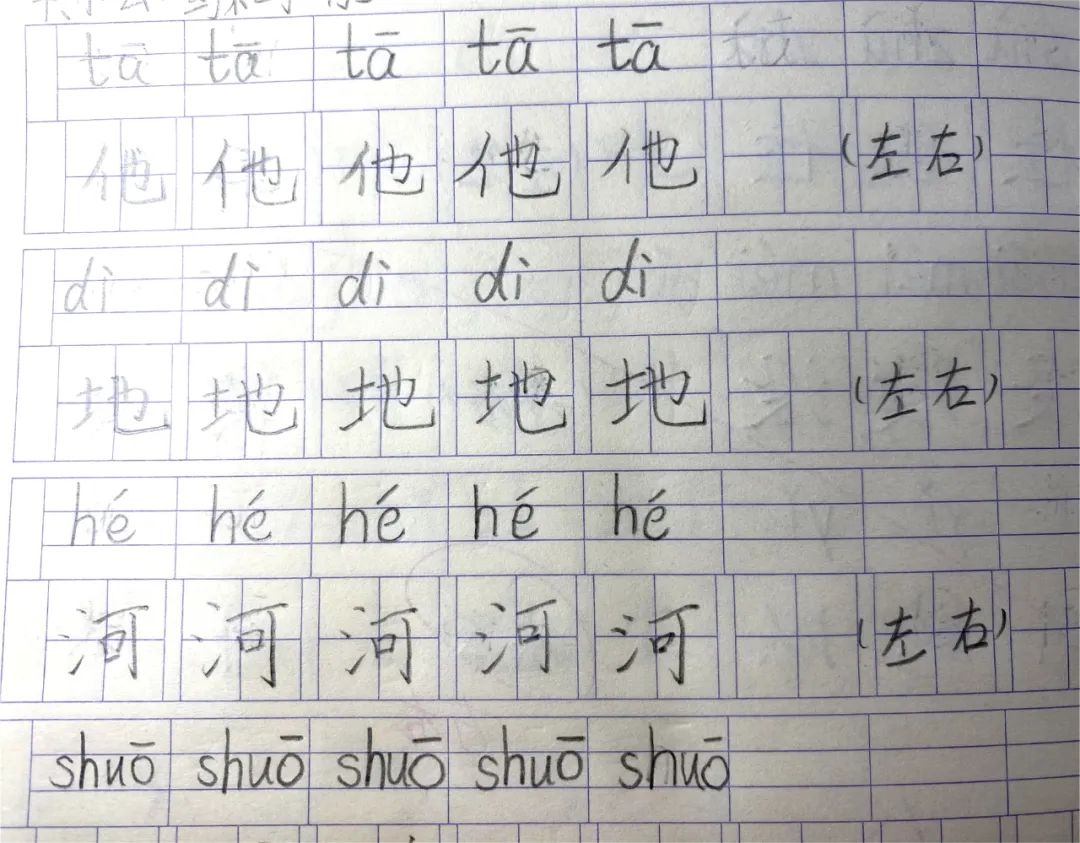 tā tā tā tā tā
他 他 他 他 他 (左右)
dì dì dì dì dì
地 地 地 地 地 (左右)
hé hé hé hé hé
河 河 河 河 河 (左右)
shuō shuō shuō shuō shuō